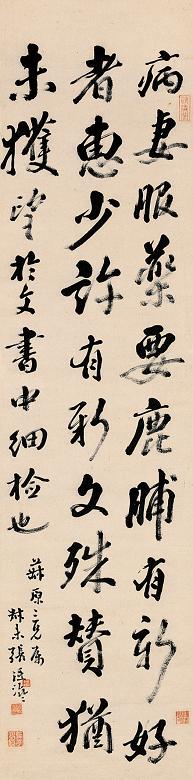 病妻服藥要鹿脯有新好
者惠少許有新文殊賛猶
未獲望於文書中細檢也
蘇原三兄屬
叔未張廷濟